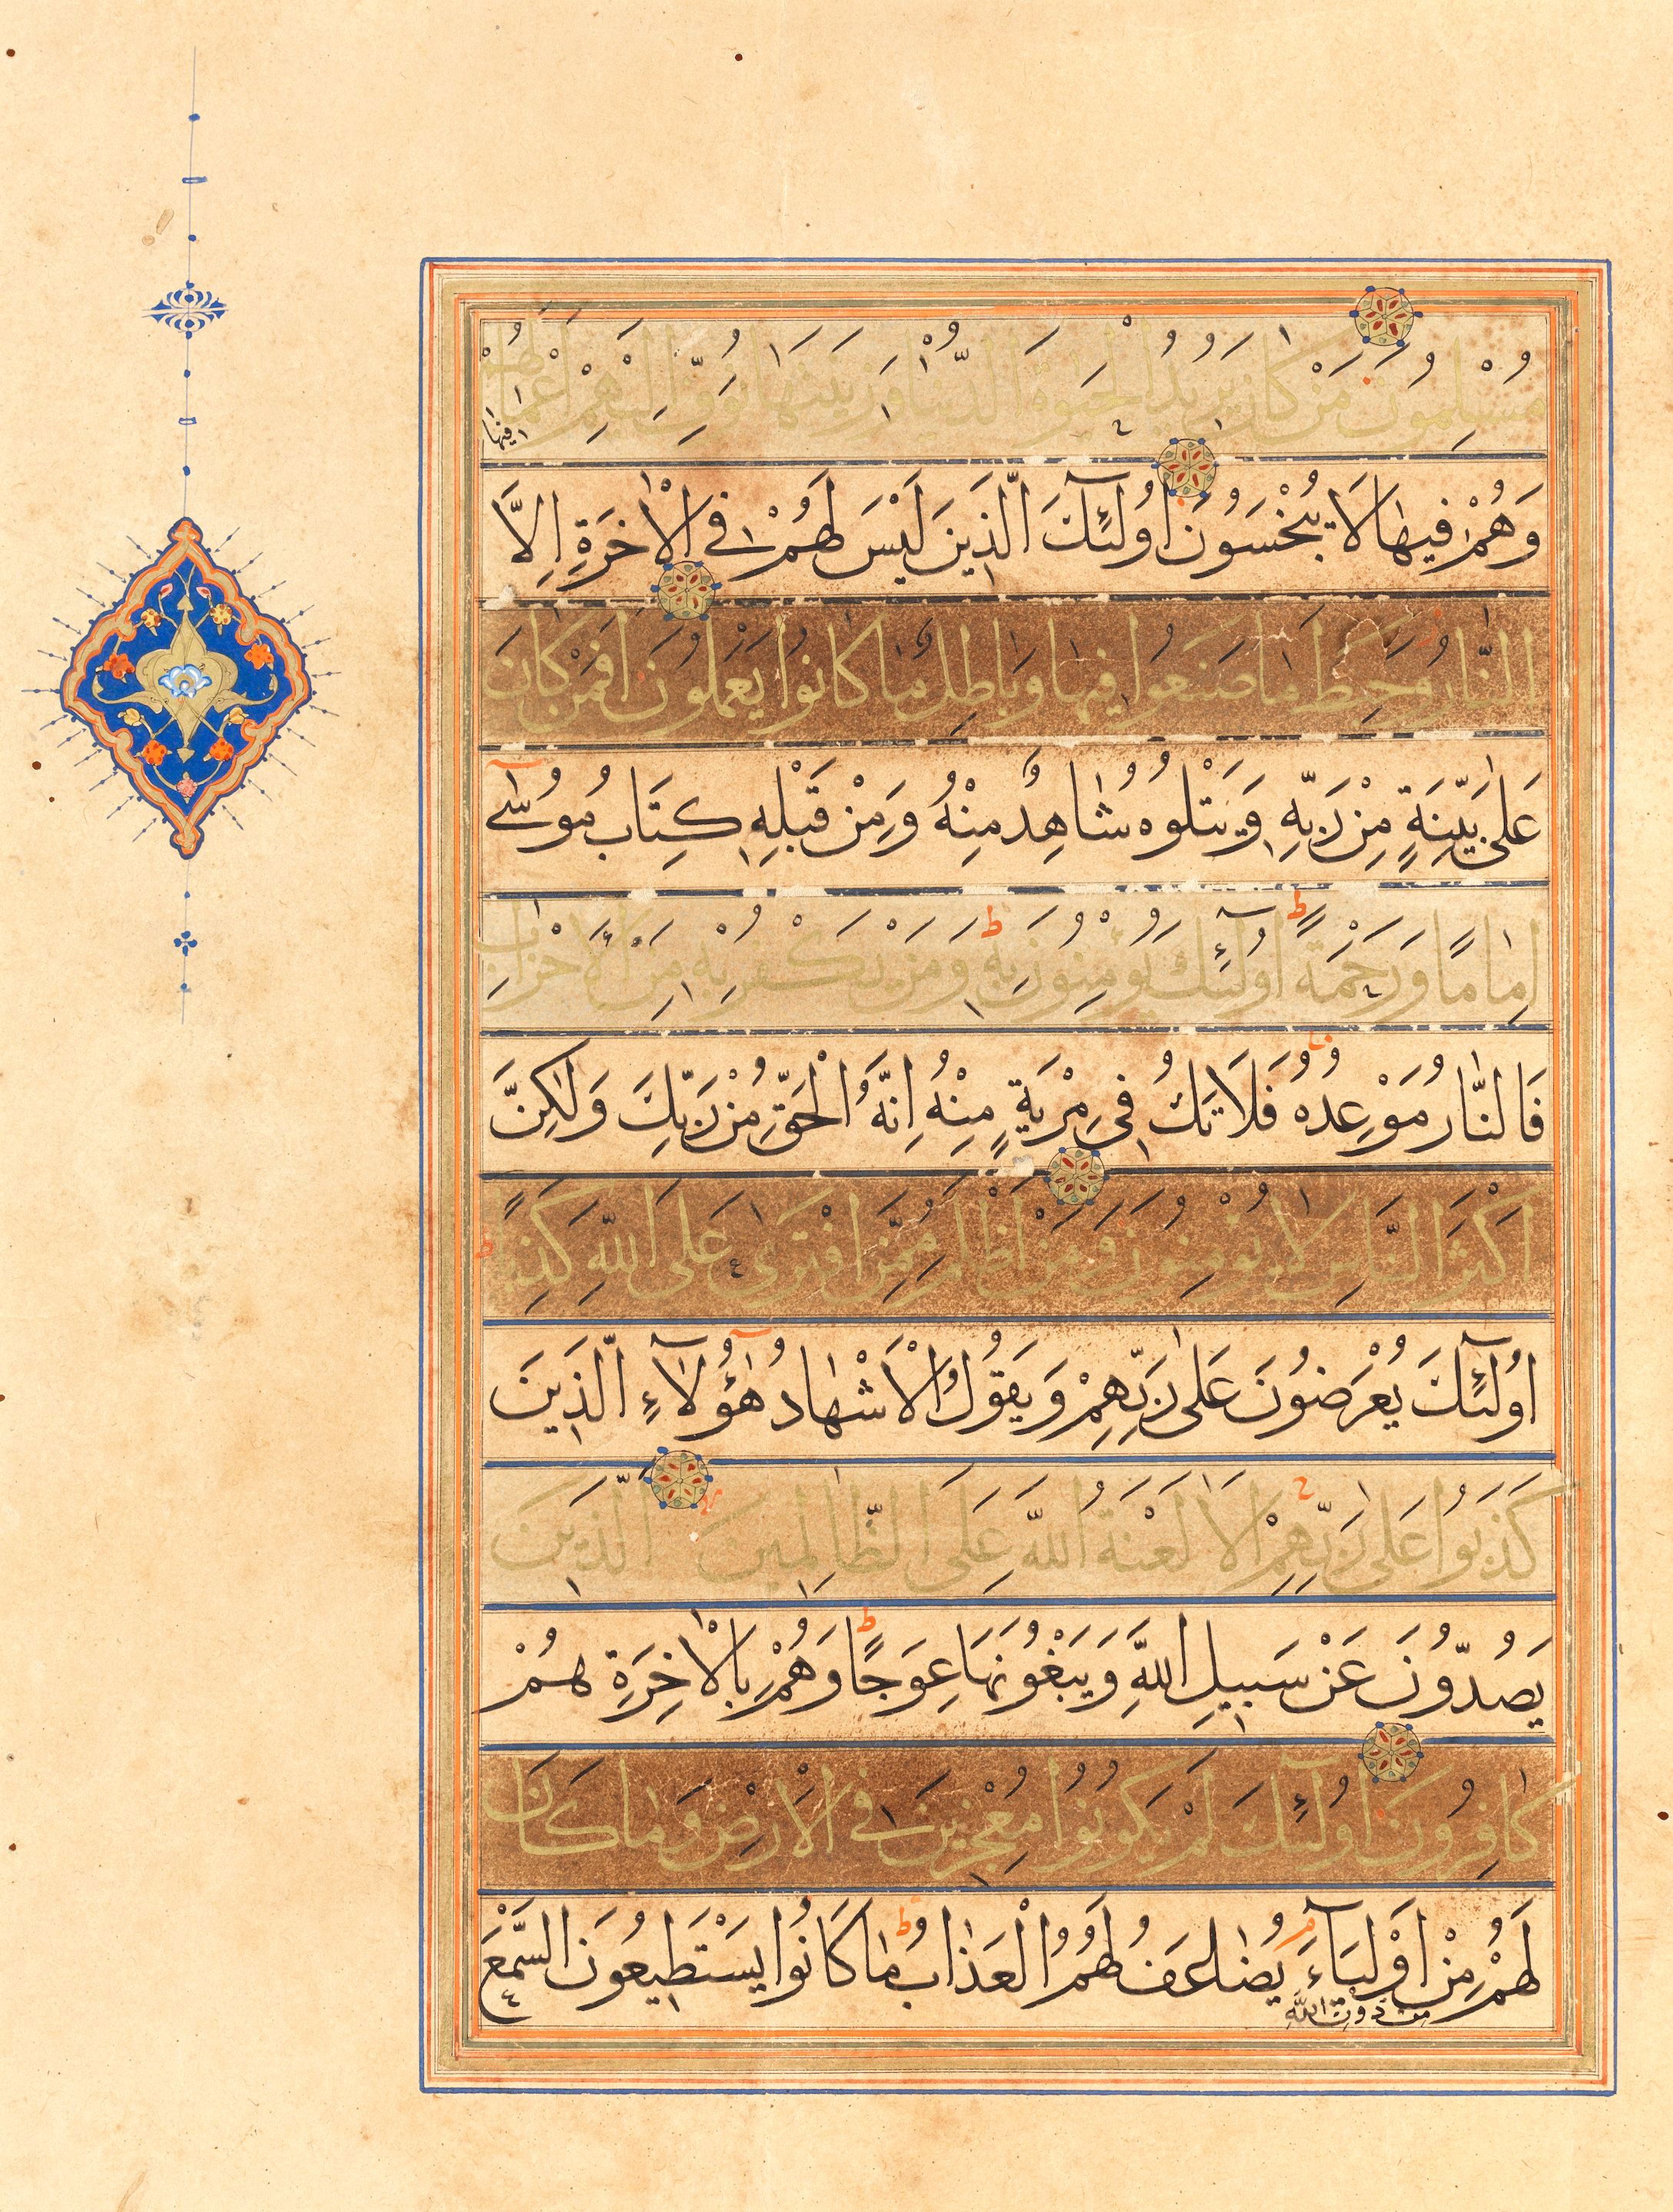 مُسْلِمُونَ مَنْ كَانَ يُرِيدُ الْحَيٰوةَ الدُّنْيَا وَزِينَتَهَا نُوَفِّ اِلَيْهِمْ اَعْمَالَهُمْ
فِيهَا
وَهُمْ فِيهَا لَا يُبْخَسُونَ اُولٰٓئِكَ الَّذِينَ لَيْسَ لَهُمْ فِي الْاٰخِرَةِ اِلَّا
النَّارُ وَحَبِطَ مَا صَنَعُوا فِيهَا وَبَاطِلٌ مَا كَانُوا يَعْمَلُونَ اَفَمَنْ كَانَ
عَلٰى بَيِّنَةٍ مِنْ رَبِّهِ وَيَتْلُوهُ شَاهِدٌ مِنْهُ وَمِنْ قَبْلِهِ كِتَابُ مُوسٰٓى
اِمَامًا وَرَحْمَةً اُولٰٓئِكَ يُؤْمِنُونَ بِهِ وَمَنْ يَكْفُرْ بِهِ مِنَ الْاَحْزَابِ
فَالنَّارُ مَوْعِدُهُ فَلَا تَكُ فِي مِرْيَةٍ مِنْهُ اِنَّهُ الْحَقُّ مِنْ رَبِّكَ وَلٰكِنَّ
اَكْثَرَ النَّاسِ لَا يُؤْمِنُونَ وَمَنْ اَظْلَمُ مِمَّنِ افْتَرٰى عَلَى اللّٰهِ كَذِبًا
اُولٰٓئِكَ يُعْرَضُونَ عَلٰى رَبِّهِمْ وَيَقُولُ الْاَشْهَادُ هٰٓؤُلَآءِ الَّذِينَ
كَذَبُوا عَلٰى رَبِّهِمْ اَلَا لَعْنَةُ اللّٰهِ عَلَى الظَّالِمِينَ الَّذِينَ
يَصُدُّونَ عَنْ سَبِيلِ اللّٰهِ وَيَبْغُونَهَا عِوَجًا وَهُمْ بِالْاٰخِرَةِ هُمْ
كَافِرُونَ اُولٰٓئِكَ لَمْ يَكُونُوا مُعْجِزِينَ فِي الْاَرْضِ وَمَا كَانَ
لَهُمْ مِنْ اَوْلِيَآءَ يُضَاعَفُ لَهُمُ الْعَذَابُ مَا كَانُوا يَسْتَطِيعُونَ السَّمْعَ
مِنْ دُونِ اللّٰهِ